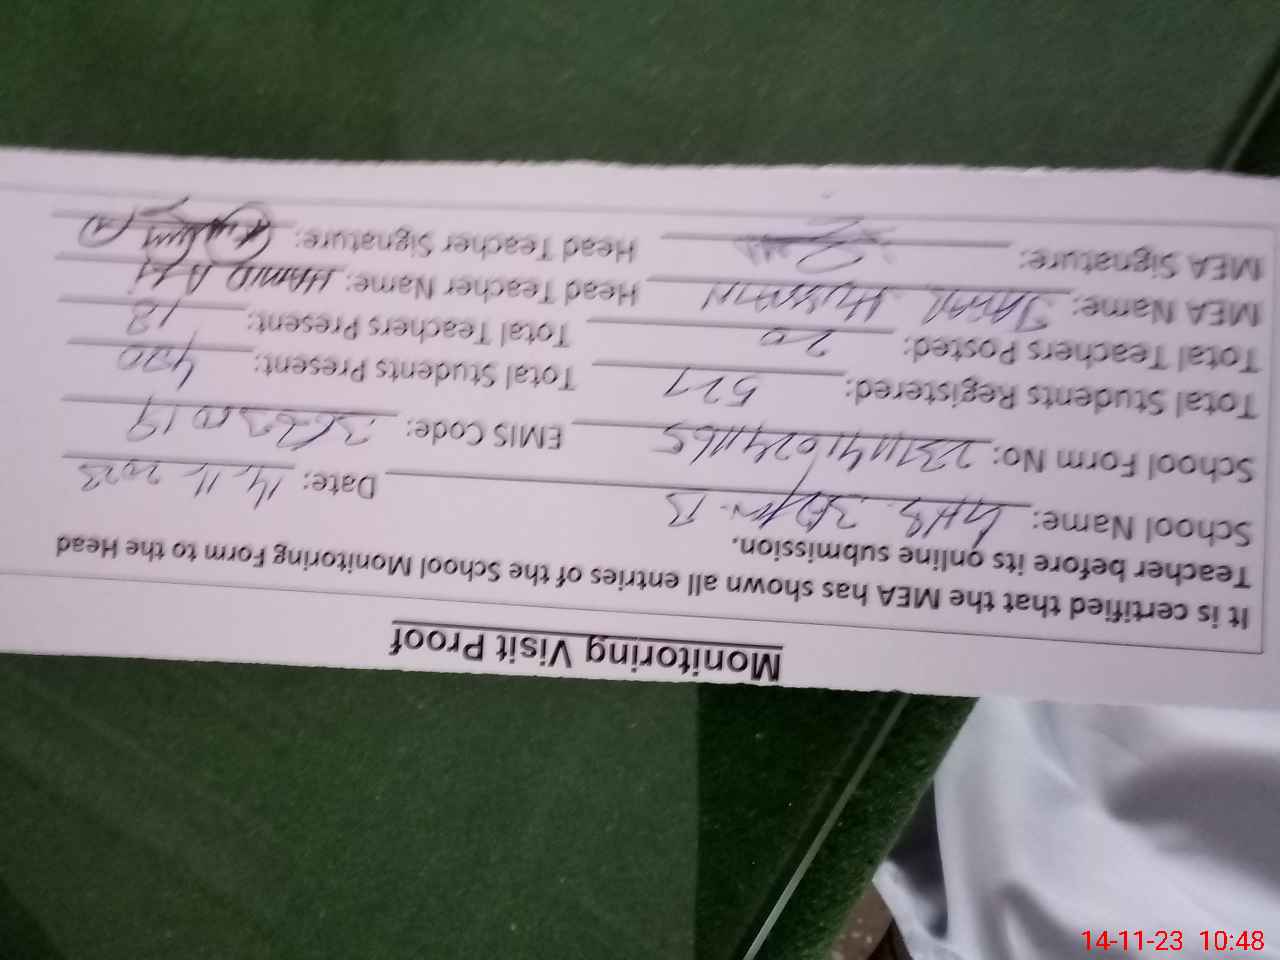 Monitoring Visit Proof
It is certified that the MEA has shown all entries of the School Monitoring Form to the Head
Teacher before its online submission.
School Name: GHS Date: 14.11.2023
School Form No: EMIS Code:
Total Students Registered: 527 Total Students Present:
Total Teachers Posted: 20 Total Teachers Present: 18
MEA Name: HUSSAIN Head Teacher Name: HAMID ALI
MEA Signature: Head Teacher Signature:
14-11-23 10:48